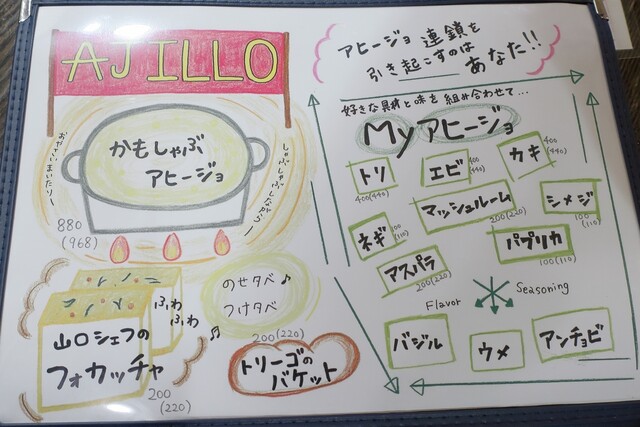 AJILLO
かもしゃぶ
アヒージョ
880
(968)
山口シェフの
フォカッチャ
ふわ
ふわ
200
(220)
のせタベ♪
つけタベ
200(220)
トリーゴの
バケット
アヒージョ連鎖を
引き起こすのは
あなた!!
好きな具材と味を組み合わせて...
Myアヒージョ
トリ
400(440)
エビ
400
(440)
カキ
400
(440)
マッシュルーム
200(220)
シメジ
100
(110)
ネギ
100
(110)
パプリカ
100(110)
アスパラ
200(220)
Flavor
Seasoning
バジル
ウメ
アンチョビ